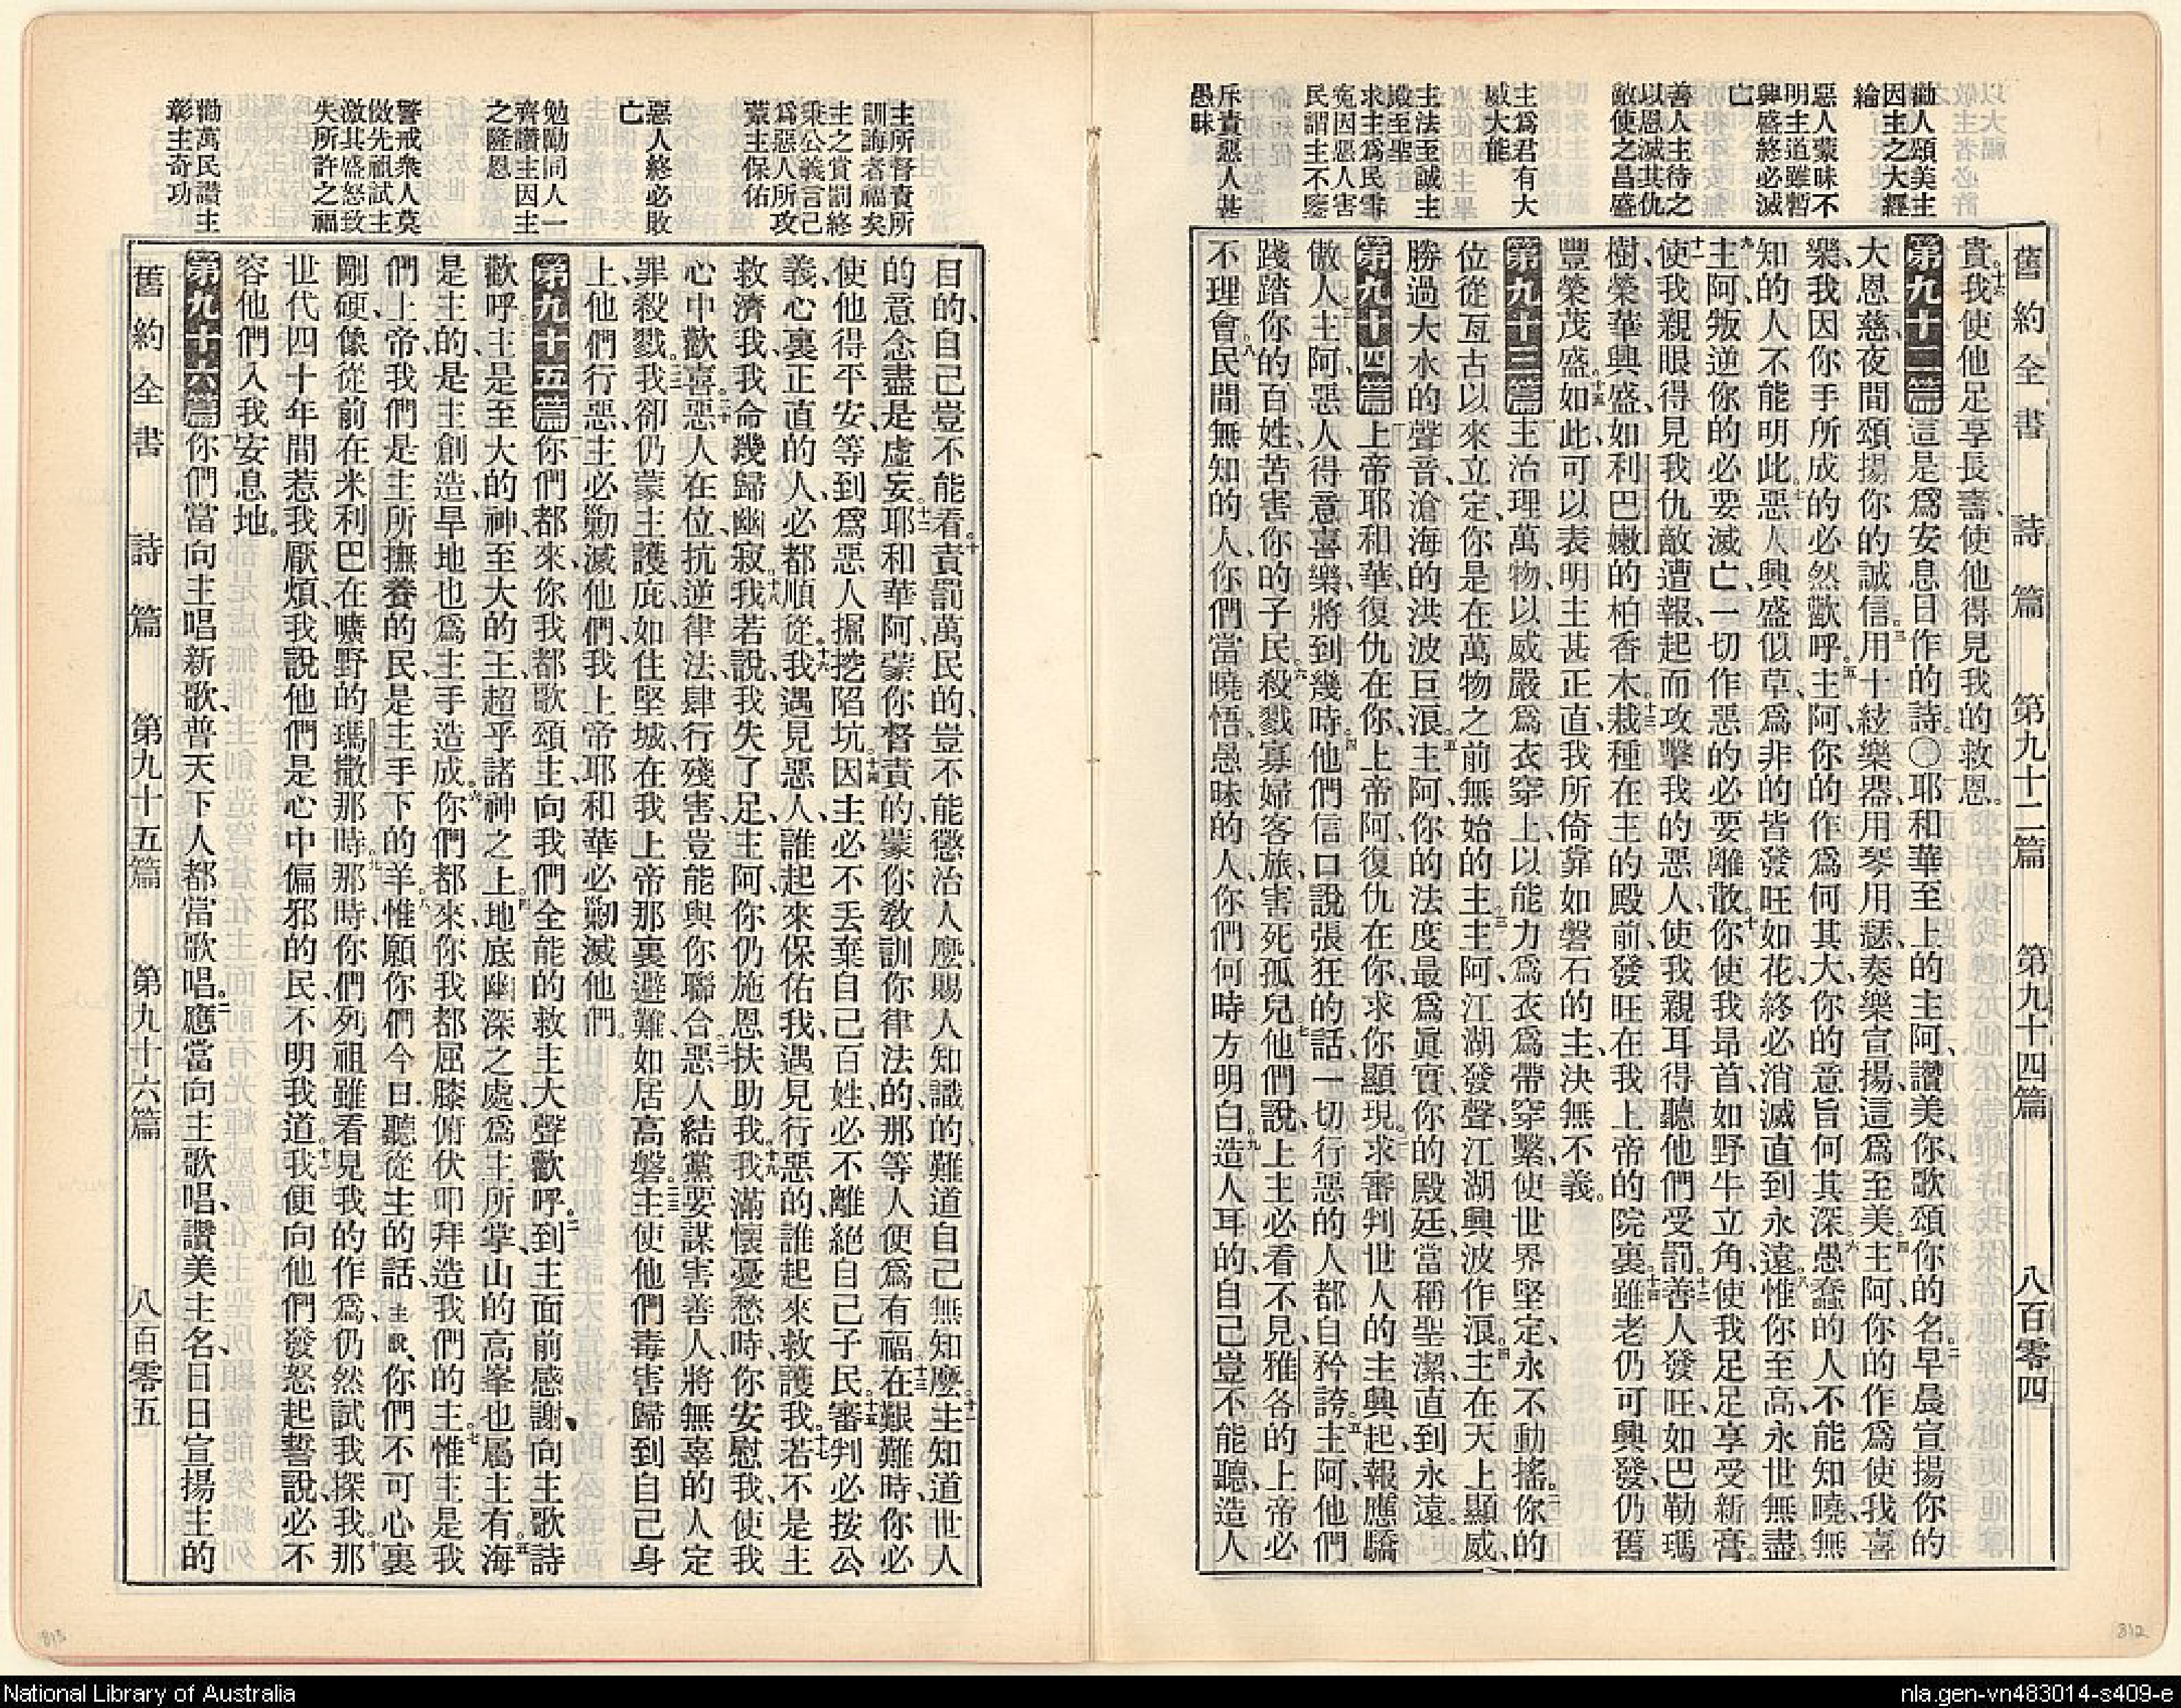 舊約全書 詩篇 第九十二篇 第九十四篇 八百零四
勸人頌美主
因主之大經
綸
惡人蒙昧不
明主道雖暫
興盛終必滅
亡
善人主待之
以恩滅其仇
敵使之昌盛
主爲君有大
威大能
主法至誠主
殿至聖
求主爲民雪
寃因惡人害
民謂主不鑒
斥責惡人甚
愚昧
貴。十六我使他足享長壽、使他得見我的救恩。
第九十二篇 這是爲安息日作的詩。〇一耶和華至上的主阿、讚美你、歌頌你的名、二早晨宣揚你的
大恩慈、夜間頌揚你的誠信。三用十絃樂器、用琴用瑟、奏樂宣揚、這爲至美。四主阿、你的作爲使我喜
樂、我因你手所成的必然歡呼。五主阿、你的作爲何其大、你的意旨何其深。六愚蠢的人不能知曉、無
知的人不能明此。七惡人興盛似草、爲非的皆發旺如花、終必消滅直到永遠。八惟你至高、永世無盡。
九主阿、叛逆你的必要滅亡、一切作惡的必要離散。十你使我昂首如野牛立角、使我足足享受新膏。
十一使我親眼得見我仇敵遭報、起而攻擊我的惡人、使我親耳得聽他們受罰。十二善人發旺如巴勒瑪
樹、榮華興盛、如利巴嫩的柏香木。十三栽種在主的殿前、發旺在我上帝的院裏。十四雖老仍可興發、仍舊
豐榮茂盛。十五如此可以表明主甚正直、我所倚靠如磐石的主、決無不義。
第九十三篇 一主治理萬物、以威嚴爲衣穿上、以能力爲衣爲帶穿繫、使世界堅定、永不動搖。二你的
位從亙古以來立定、你是在萬物之前無始的主。三主阿、江湖發聲、江湖興波作浪。四主在天上顯威、
勝過大水的聲音、滄海的洪波巨浪。五主阿、你的法度最爲眞實、你的殿廷當稱聖潔、直到永遠。
第九十四篇 一上帝耶和華、復仇在你、上帝阿、復仇在你、求你顯現。二求審判世人的主興起、報應驕
傲人。三主阿、惡人得意喜樂、將到幾時。四他們信口說張狂的話、一切行惡的人都自矜誇。五主阿、他們
踐踏你的百姓、苦害你的子民。六殺戮寡婦客旅、害死孤兒。七他們說、上主必看不見、雅各的上帝必
不理會。八民間無知的人、你們當曉悟、愚昧的人、你們何時方明白。九造人耳的、自己豈不能聽、造人
主所督責所
訓誨者福矣
主之賞罰終
秉公義言己
爲惡人所攻
蒙主保佑
惡人終必敗
亡
勉勵同人一
齊讚主因主
之隆恩
警戒衆人莫
倣先祖試主
激其盛怒致
失所許之福
勸萬民讚主
彰主奇功
目的、自己豈不能看。十責罰萬民的、豈不能懲治人麼、賜人知識的、難道自己無知麼。十一主知道世人
的意念盡是虛妄。十二耶和華阿、蒙你督責的、蒙你敎訓你律法的、那等人便爲有福。十三在艱難時、你必
使他得平安、等到爲惡人掘挖陷坑。十四因主必不丟棄自己百姓、必不離絕自己子民。十五審判必按公
義、心裏正直的人、必都順從。十六我遇見惡人、誰起來保佑我、遇見行惡的、誰起來救護我。十七若不是主
救濟我、我命幾歸幽寂。十八我若說、我失了足、主阿、你仍施恩扶助我。十九我滿懷憂愁時、你安慰我、使我
心中歡喜。二十惡人在位、抗逆律法、肆行殘害、豈能與你聯合。二一惡人結黨要謀害善人、將無辜的人定
罪殺戮。二二我卻仍蒙主護庇、如住堅城、在我上帝那裏避難、如居高磐。二三主使他們毒害歸到自己身
上、他們行惡、主必勦滅他們、我上帝耶和華必勦滅他們。
第九十五篇 一你們都來、你我都歌頌主、向我們全能的救主大聲歡呼。二到主面前感謝、向主歌詩
歡呼。三主是至大的神、至大的王、超乎諸神之上。四地底幽深之處、爲主所掌、山的高峯也屬主有。五海
是主的、是主創造、旱地也爲主手造成。六你們都來、你我都屈膝俯伏叩拜造我們的主。七惟主是我
們上帝、我們是主所撫養的民、是主手下的羊。八惟願你們今日聽從主的話、主說、你們不可心裏
剛硬、像從前在米利巴、在曠野的瑪撒那時。九那時你們列祖雖看見我的作爲、仍然試我探我。十那
世代四十年間惹我厭煩、我說、他們是心中偏邪的民、不明我道。十一我便向他們發怒起誓說、必不
容他們入我安息地。
第九十六篇 一你們當向主唱新歌、普天下人都當歌唱。二應當向主歌唱、讚美主名、日日宣揚主的
舊約全書 詩篇 第九十五篇 第九十六篇 八百零五
813
812
National Library of Australia
nla.gen-vn483014-s409-e